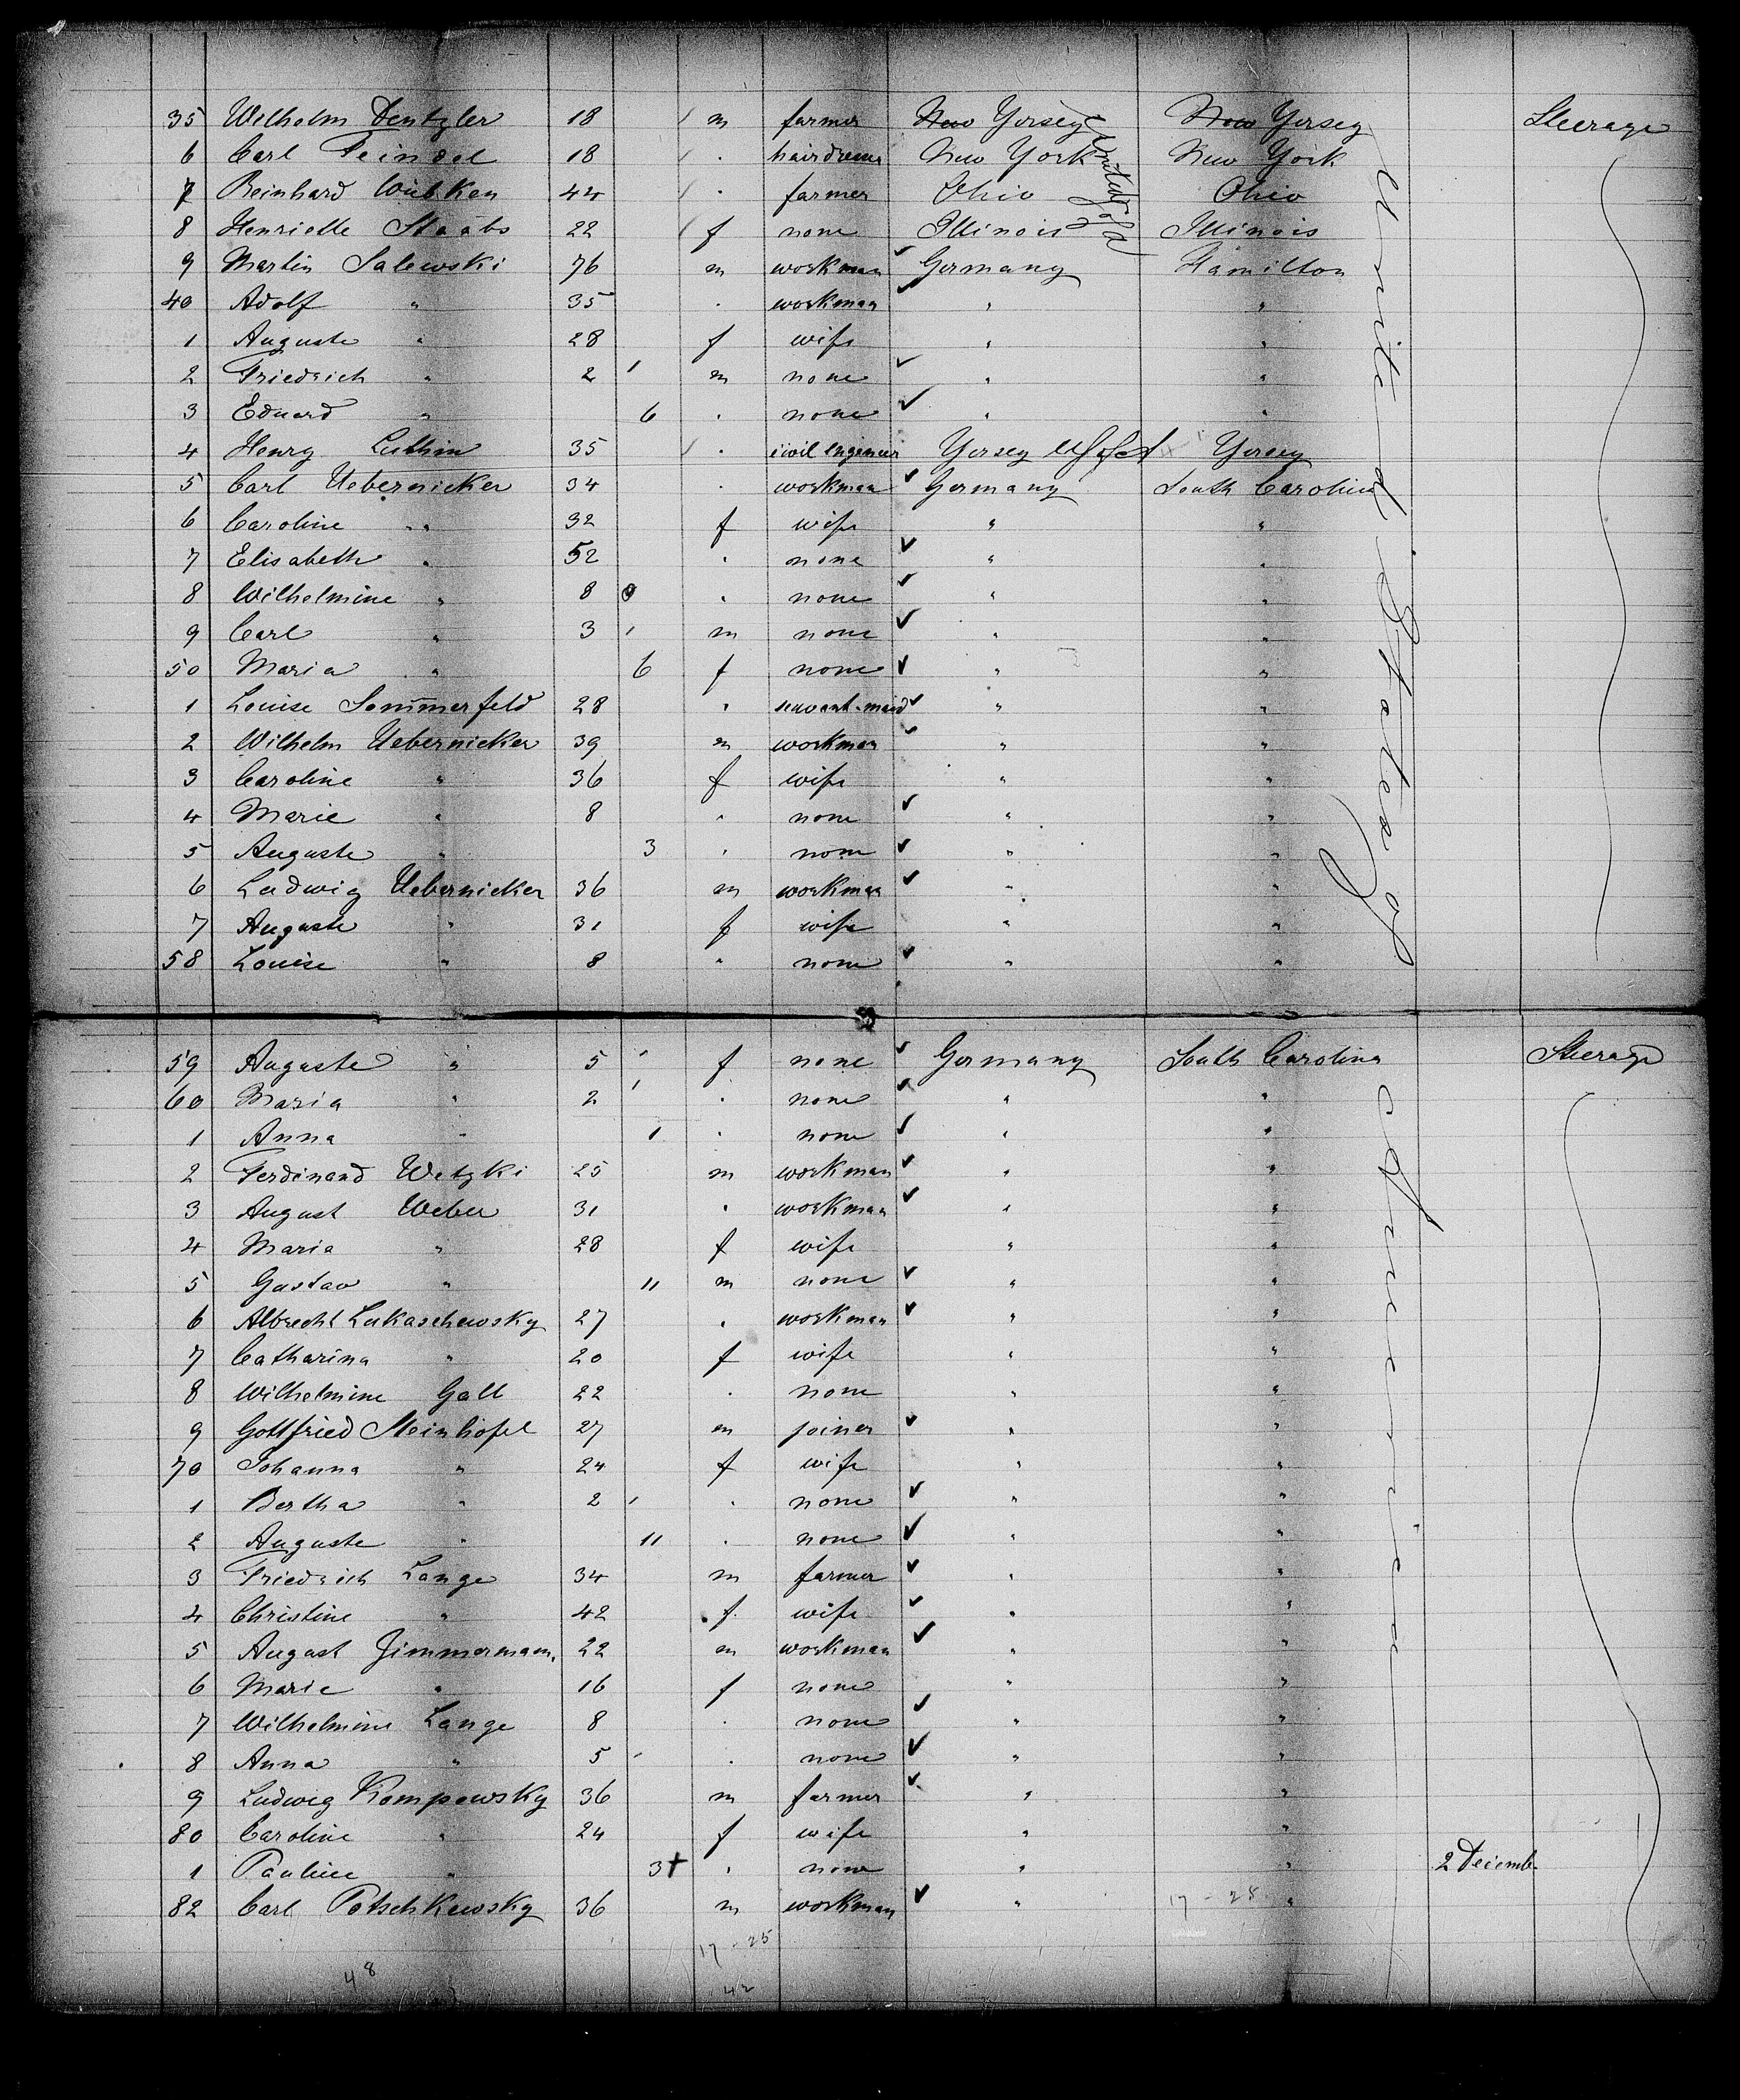 35 Wilhelm Dentzler 18 / m farmer New Yersey New Yersey Steerage
6 Carl Feindel 18 / . New York New York
7 Reinhard Wübken 44 / . farmer Ohio Ohio
8 Henriette Staabs 22 / f none Illinois Illinois
9 Martin Salewski 76 m workman ✓ Germany Hamilton
40 Adolf " 35 . workman ✓ " "
1 Auguste " 28 f wife " "
2 Friedrich " 2 / m none ✓ " "
3 Eduard " 6 . none ✓ " "
4 Henry Luthin 35 / . civil engineer Yersey Yersey
5 Carl Uebernicker 34 . workman ✓ Germany South Carolina
6 Caroline " 32 f wife " "
7 Elisabeth " 52 . none ✓ " "
8 Wilhelmine " 8 . none ✓ " "
9 Carl " 3 / m none ✓ " "
50 Maria " 6 f none ✓ " "
1 Louise Sommerfeld 28 . servant-maid ✓ " "
2 Wilhelm Uebernicker 39 m workman ✓ " "
3 Caroline " 36 f wife " "
4 Marie " 8 . none ✓ " "
5 Auguste " 3 . none ✓ " "
6 Ludwig Uebernicker 36 m workman ✓ " "
7 Auguste " 31 f wife " "
58 Louise " 8 " none ✓ " "
United States of
59 Auguste " 5 / f none ✓ Germany South Carolina Steerage
60 Maria " 2 / . none ✓ " "
1 Anna " 1 . none ✓ " "
2 Ferdinand Wetzki 25 m workman ✓ " "
3 August Weber 31 . workman ✓ " "
4 Maria " 28 f wife " "
5 Gustav " 11 m none ✓ " "
6 Albrecht Lukaschewsky 27 . workman ✓ " "
7 Catharina " 20 f wife " "
8 Wilhelmine Gall 22 . none " "
9 Gottfried Steinhöfel 27 m joiner ✓ " "
70 Johanna " 24 f wife " "
1 Bertha " 2 / . none ✓ " "
2 Auguste " 11 . none ✓ " "
3 Friedrich Lange 34 m farmer ✓ " "
4 Christine " 42 f. wife ✓ " "
5 August Zimmermann 22 m workman ✓ " "
6 Marie " 16 f none " "
7 Wilhelmine Lange 8 . none ✓ " "
8 Anna " 5 / . none ✓ " "
9 Ludwig Kompowsky 36 m farmer ✓ " "
80 Caroline " 24 f wife " "
1 Pauline " 3 † . none " " 2 Decemb.
82 Carl Potschkewsky 36 m workman ✓ " 17 - 28 "
America
17 - 25
48
42